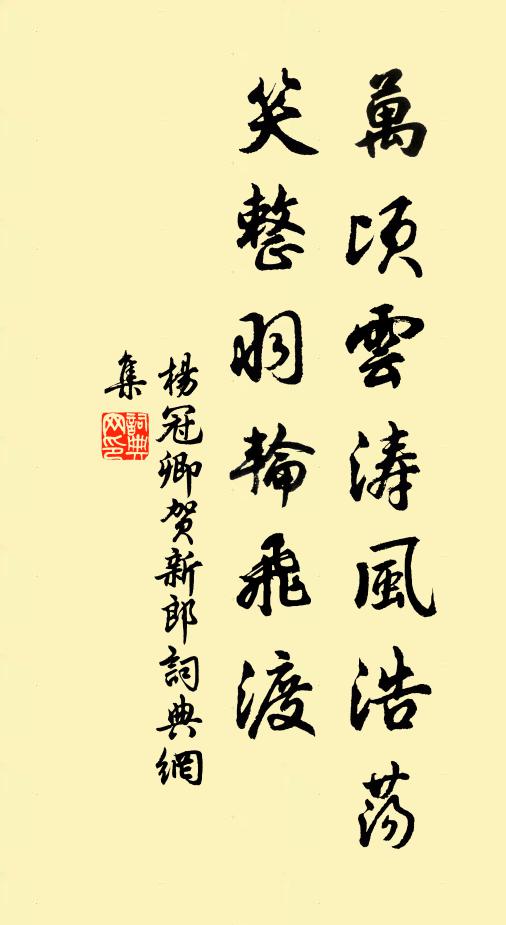 萬頃雲涛風浩荡
笑整羽輪飛渡
楊冠卿贺新郎詞典網
集
詞典
网印